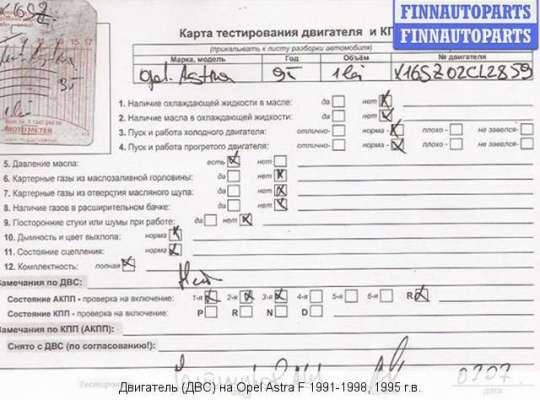 FINNAUTOPARTS
FINNAUTOPARTS
Карта тестирования двигателя и КП
(прикалывать к листу разборки автомобиля)
Марка, модель Год Объём № двигателя
Opel Astra 95 1.6i X16SZ02CL2859
1. Наличие охлаждающей жидкости в масле: да нет
2. Наличие масла в охлаждающей жидкости: да нет
3. Пуск и работа холодного двигателя: отлично- норма - плохо - не завелся-
4. Пуск и работа прогретого двигателя: отлично- норма - плохо - не завелся-
5. Давление масла: есть нет
6. Картерные газы из маслозаливной горловины: да нет
7. Картерные газы из отверстия масляного щупа: да нет
8. Наличие газов в расширительном бачке: да нет
9. Посторонние стуки или шумы при работе: да нет
10. Дымность и цвет выхлопа: норма
11. Состояние сцепления: норма
12. Комплектность: полная
Замечания по ДВС: Нет
Состояние АКПП - проверка на включение: 1-я 2-я 3-я 4- 5- 6- R
Состояние КПП - проверка на включение: P R N D
Замечания по КПП (АКПП):
Снято с ДВС (по согласованию!):
Двигатель (ДВС) на Opel Astra F 1991-1998, 1995 г.в.